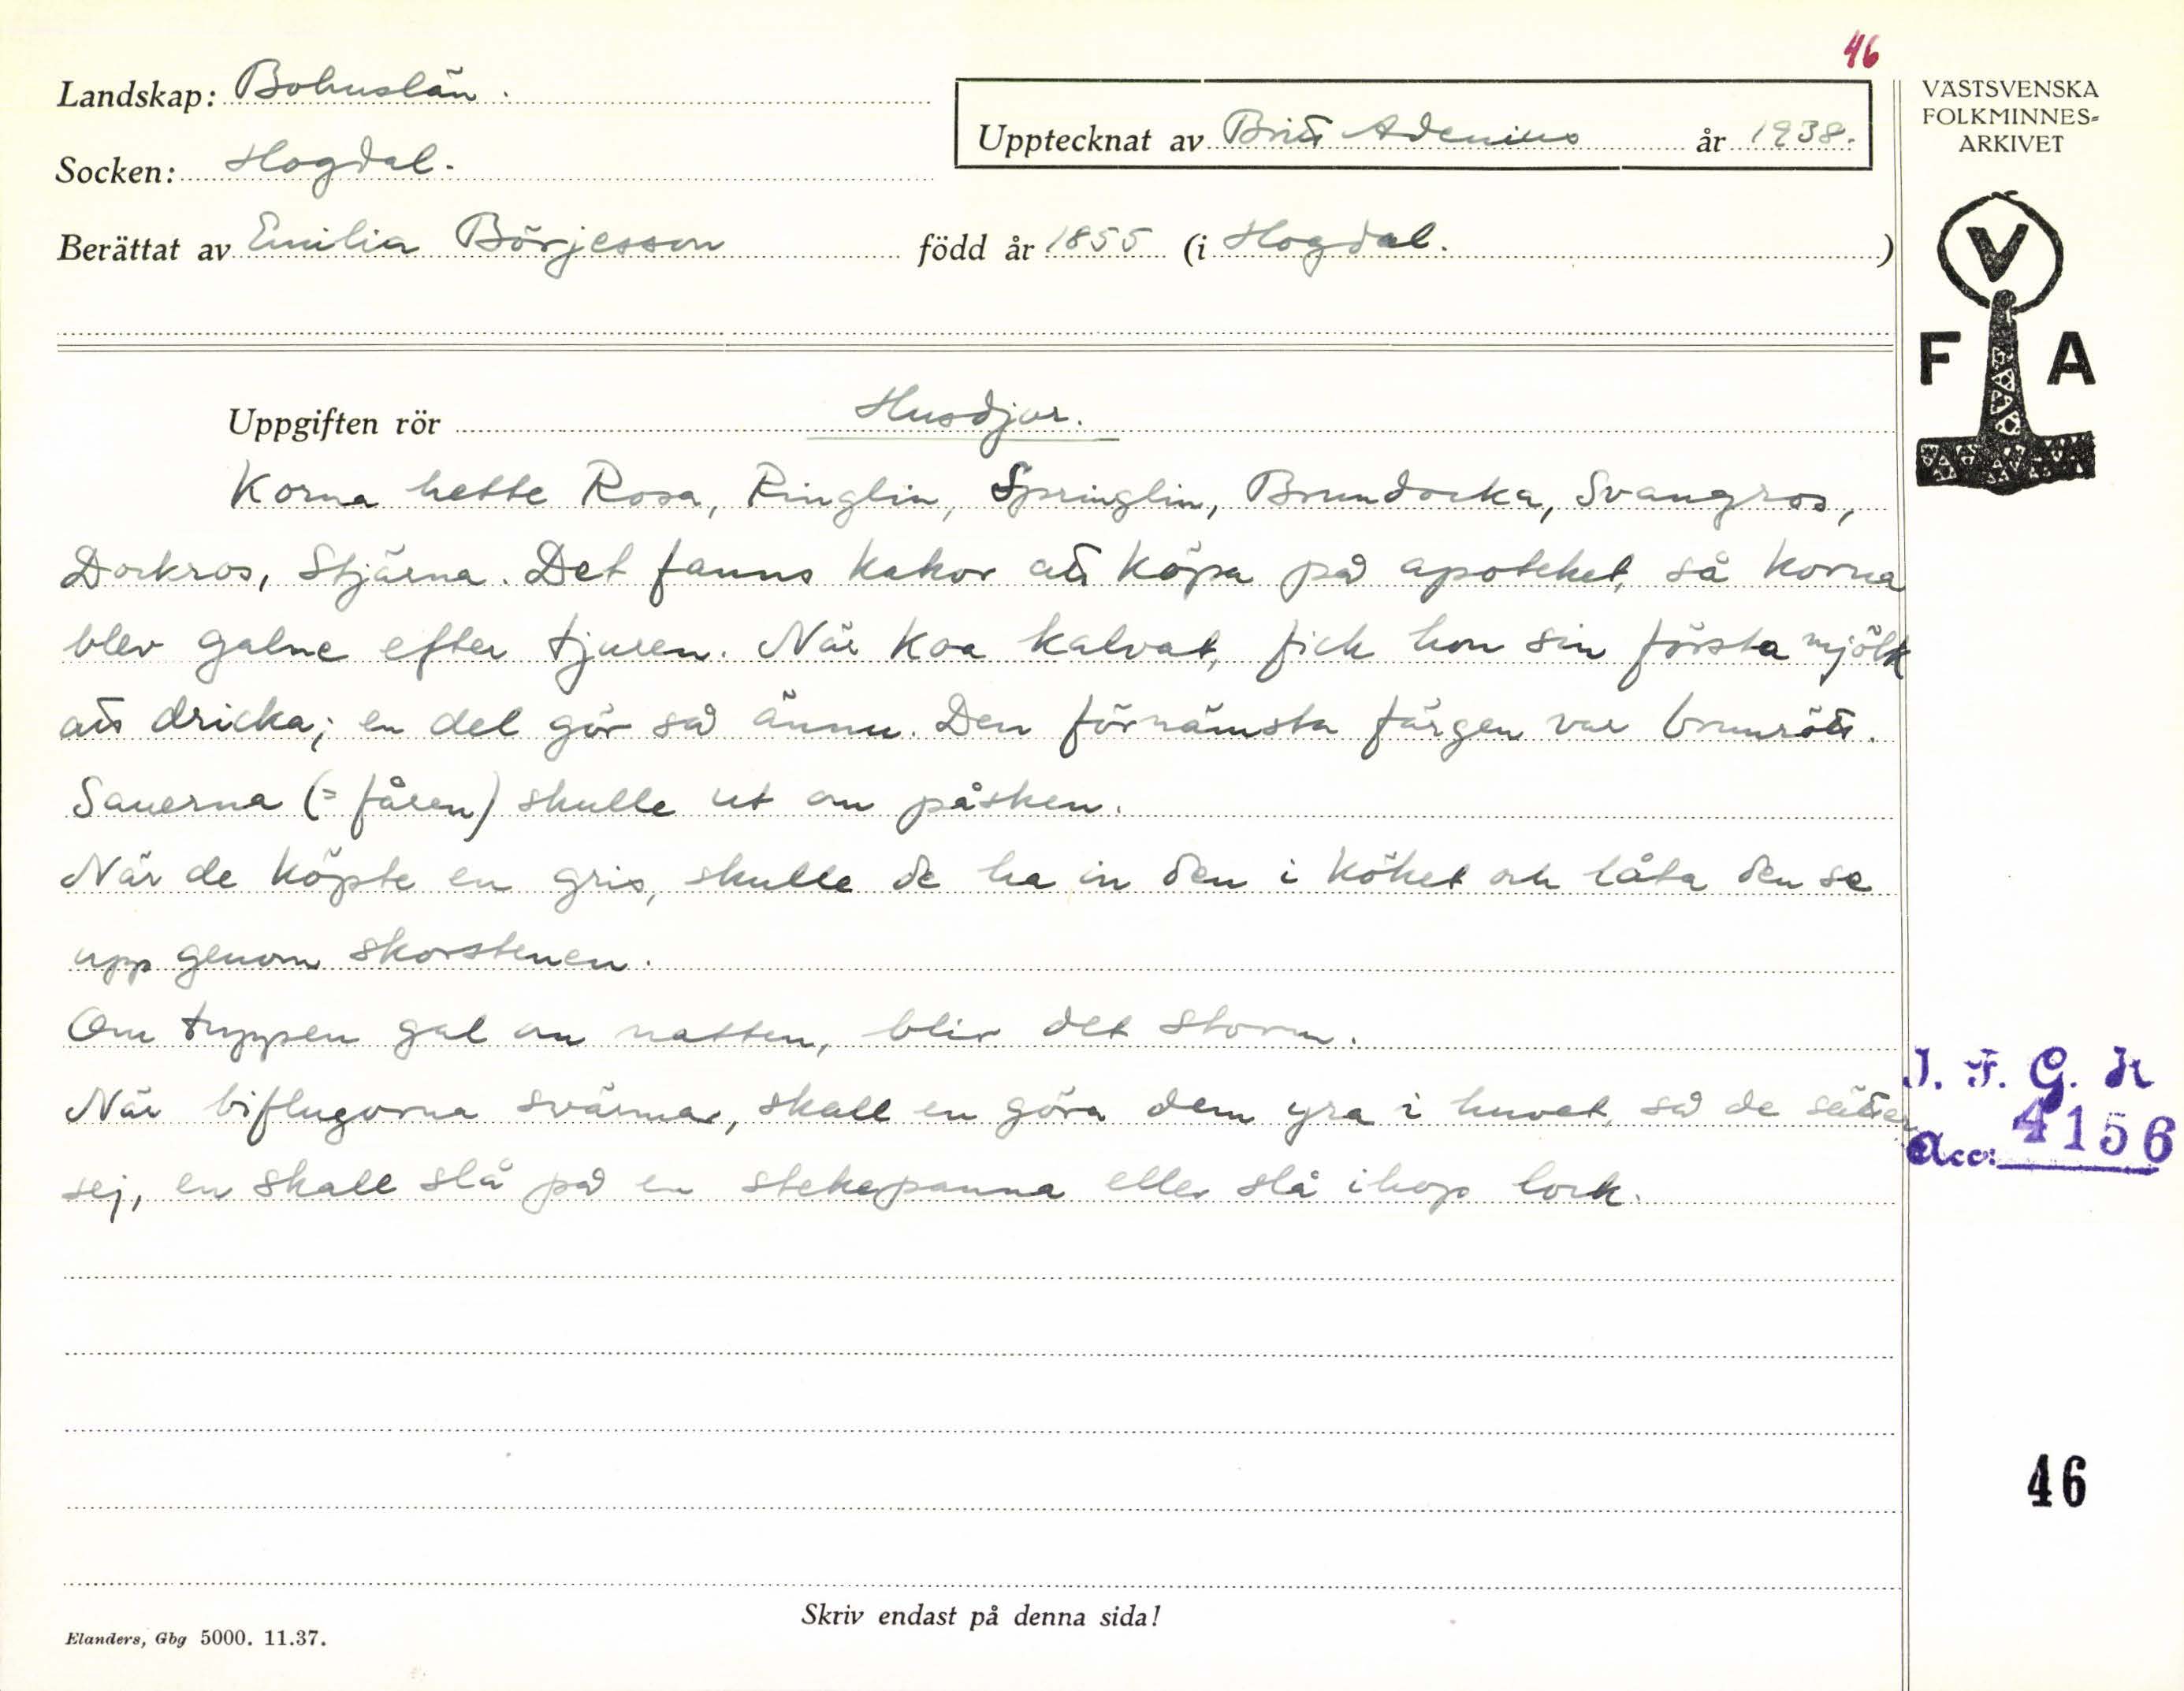 46
Landskap: Bohuslän.
Upptecknat av Britt Adenius år 1938.
Socken: Hogdal.
Berättat av Emilia Börjesson född år 1855 (i Hogdal.)
VÄSTSVENSKA
FOLKMINNES=
ARKIVET
V
F A
Uppgiften rör Husdjur.
Korna hette Rosa, Ringlin, Springlin, Brundocka, Svangros,
Dockros, Stjärna. Det fanns kakor att köpa på apoteket, så korna
blev galne efter tjuren. När koa kalvat, fick hon sin första mjölk
att dricka; en del gör så ännu. Den förnämsta färgen var brunrött.
Sauerna (= fåren) skulle ut om påsken.
När de köpte en gris, skulle de ha in den i köket och låta den se
upp genom skorstenen.
Om tuppen gal om natten, blir det storm.
När biflugorna svärmar, skall en göra dem yra i huvet, så de sätter
sej, en skall slå på en stekepanna eller slå ihop lock.
I. F. G. H
Acc: 4156
46
Skriv endast på denna sida!
Elanders, Gbg 5000. 11.37.